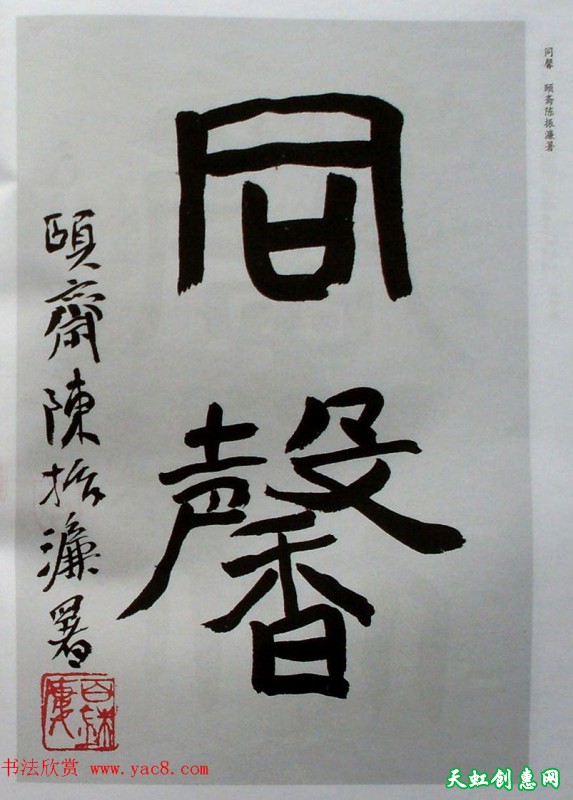 同馨 頤斋陈振濂署
同馨
頤齋陳振濂署
书法欣赏 www.yac8.com
天虹创惠网